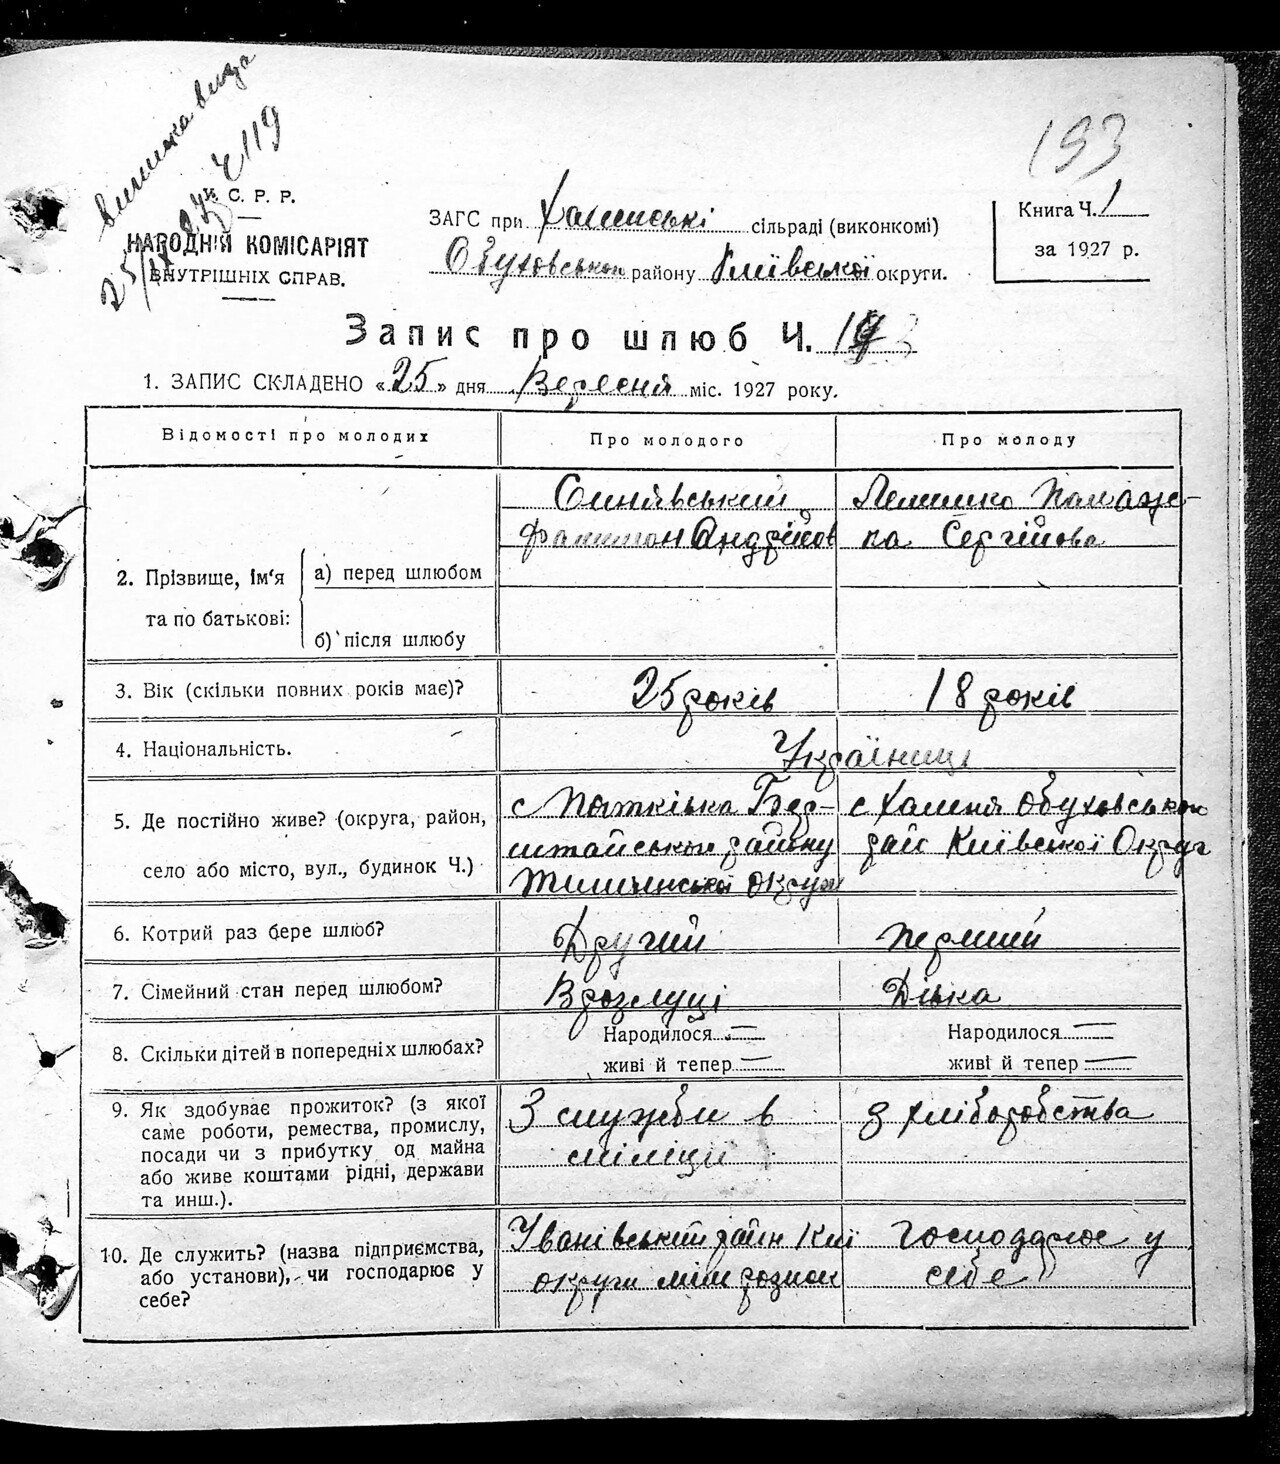 виписка видана
25/IX 27 Ч 119
193
У. С. Р. Р.
НАРОДНІЙ КОМІСАРІЯТ
ВНУТРІШНІХ СПРАВ.
ЗАГС при Халепській сільраді (виконкомі)
Обуховського району Київської округи.
Книга Ч. 1
за 1927 р.
Запис про шлюб Ч.
1. ЗАПИС СКЛАДЕНО « 25 » дня Вересня міс. 1927 року.
Відомості про молодих Про молодого Про молоду
Синявський
Андрійов
Сергійова
2. Прізвище, ім'я
та по батькові:
а) перед шлюбом
б) після шлюбу
3. Вік (скільки повних років має)? 25 років 18 років
4. Національність. Українці
5. Де постійно живе? (округа, район,
село або місто, вул., будинок Ч.)
с
району
округи
с Халепя Обуховського
рай Київської Округ
6. Котрий раз бере шлюб? Другий перший
7. Сімейний стан перед шлюбом? В розлуці Дівка
8. Скільки дітей в попередніх шлюбах?
Народилося — Народилося —
живі й тепер — живі й тепер —
9. Як здобуває прожиток? (з якої
саме роботи, ремества, промислу,
посади чи з прибутку од майна
або живе коштами рідні, держави
та инш.).
З служби в
міліції
з хліборобства
10. Де служить? (назва підприємства,
або установи), чи господарює у
себе?
Іванівський райн Киї
округи
господарює у
себе